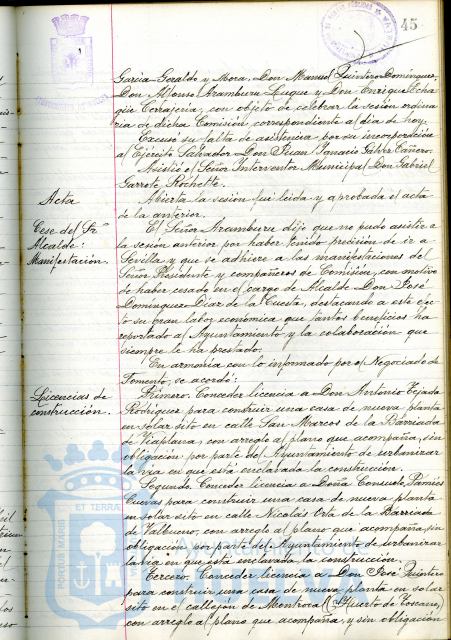 45
Garcia-Geraldo y Mora, Don Manuel Quintero Dominguez,
Don Alfonso Aramburu Luque y Don Enrique Echa
güe Cerrajería, con objeto de celebrar la sesión ordina
ria de dicha Comisión, correspondiente al día de hoy.
Excusó su falta de asistencia, por su incorporación
al Ejército Salvador Don Juan Ignacio Gálvez Cañero.
Asistió el Señor Interventor Municipal Don Gabriel
Garrote Rochelte.
Acta
Abierta la sesión fué leida y aprobada el acta
de la anterior.
Cese del Sr.
Alcalde.
Manifestación.
El Señor Aramburu dijo que no pudo asistir a
la sesión anterior por haber tenido precisión de ir a
Sevilla y que se adhiere a las manifestaciones del
Señor Presidente y compañeros de Comisión, con motivo
de haber cesado en el cargo de Alcalde Don José
Dominguez Díaz de la Cuesta, destacando a este efec
to su gran labor económica que tantos beneficios ha
reportado al Ayuntamiento y la colaboración que
siempre le ha prestado.
En armonía con lo informado por el Negociado de
Fomento, se acordó:
Licencias de
construcción.
Primero. Conceder licencia a Don Antonio Tejada
Rodríguez para construir una casa de nueva planta
en solar sito en calle San Marcos de la Barriada
de Viaplana, con arreglo al plano que acompaña, sin
obligación por parte del Ayuntamiento de urbanizar
la via en que está enclavada la construcción.
Segundo. Conceder licencia a Doña Consuelo
Cuevas para construir una casa de nueva planta
en solar sito en calle Nicolás Orta de la Barriada
de Balbueno, con arreglo al plano que acompaña, sin
obligación por parte del Ayuntamiento de urbanizar
la via en que está enclavada la construcción.
Tercero. Conceder licencia a Don José Quintero
para construir una casa de nueva planta en solar
sito en el callejón de Montrocal (Huerto de Toscano),
con arreglo al plano que acompaña, y sin obligación
PORTUS MARIS ET TERRAE
Ayuntamiento de